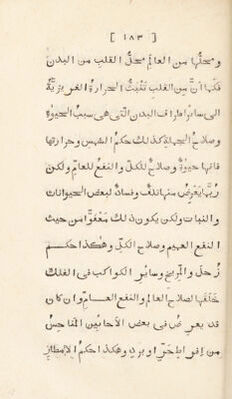 [ ١٨٣ ]
ومحلّها من العالم محلّ القلب من البدن
فكما أنّ من القلب تنبثّ الحرارة الغريزيّة
الى سائر اطراف البدن التى هى سبب الحيوة
وصلاح الجملة كذلك حكم الشمس وحرارتها
فانها حيوة وصلاح للكلّ والنفع للعالم ولكن
ربّما يعرض منها تلف وفساد لبعض الحيوانات
والنبات ولكن يكون ذلك مغفرا من حيث
النفع العميم وصلاح الكلّ وهكذا حكم
زحل والمرّيخ وسائر الكواكب فى الفلك
خلقها لصلاح العالم والنفع العامّ وان كان
قد يعرض فى بعض الأحايين المناحس
من افراط حرّ او برد وهكذا حكم الأمطار